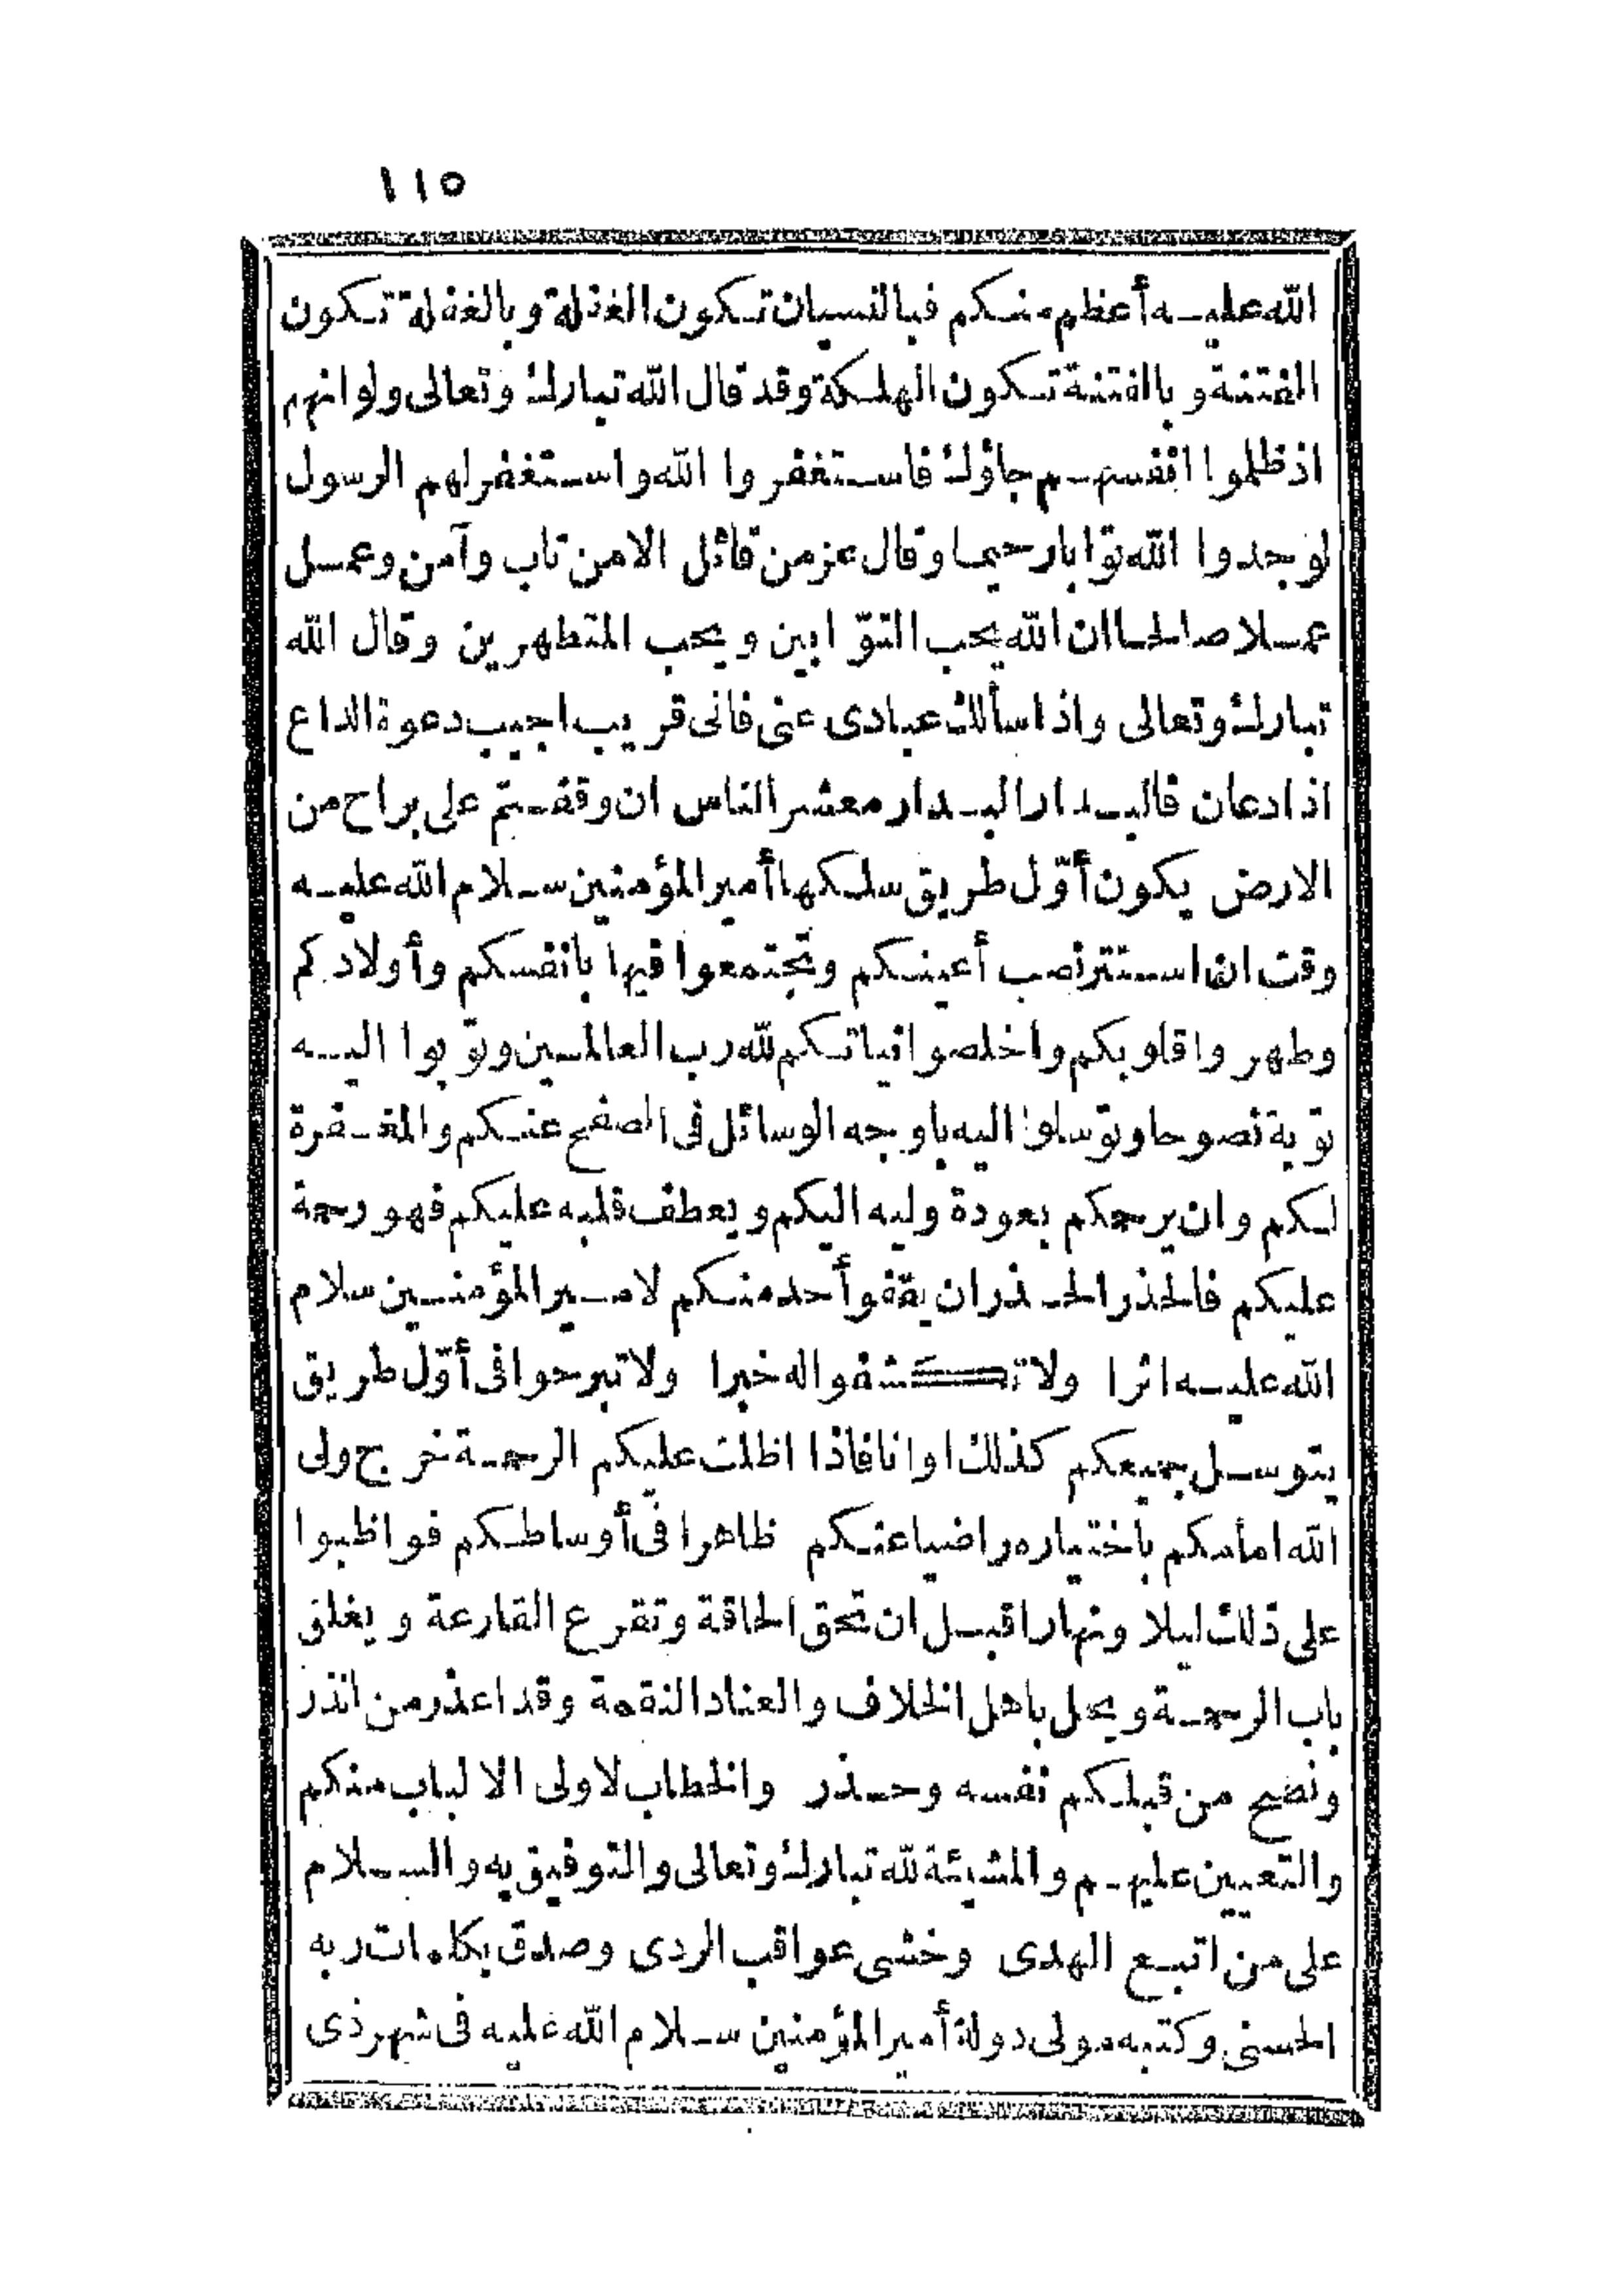 ١١٥
الله عليه أعظم منكم فبالنسيان تكون الغفلة وبالغفلة تكون
الفتنة وبالفتنة تكون الهلكة وقد قال الله تبارك وتعالى ولوانهم
اذ ظلموا انفسهم جاؤك فاستغفروا الله واستغفر لهم الرسول
لوجدوا الله توّابا رحيما وقال عز من قائل الامن تاب وآمن وعمل
عملا صالحا ان الله يحب التوّابين ويحب المتطهرين وقال الله
تبارك وتعالى واذا سألك عبادى عنى فانى قريب اجيب دعوة الداع
اذا دعان فالبدار البدار معشر الناس ان وقفتم على براح من
الارض يكون أوّل طريق سلكها أمير المؤمنين سلام الله عليه
وقت ان استتر نصب أعينكم وتجتمعوا فيها بانفسكم وأولادكم
وطهروا قلوبكم واخلصوا نياتكم لله رب العالمين وتوبوا اليه
توبة نصوحا وتوسلوا اليه باوجه الوسائل فى الصفح عنكم والمغفرة
لكم وان يرحمكم بعودة وليه اليكم ويعطف قلبه عليكم فهو رحمة
عليكم فالحذر الحذر ان يقفو أحد منكم لامير المؤمنين سلام
الله عليه اثرا ولا تكشفوا له خبرا ولا تبرحوا فى أوّل طريق
يتوسل جميعكم كذلك اوانا فاذا اظلت عليكم الرحمة خرج ولى
الله امامكم باختياره راضيا عنكم ظاهرا فى أوساطكم فواظبوا
على ذلك ليلا ونهارا قبل ان تحق الحاقة وتقرع القارعة ويغلق
باب الرحمة ويحل باهل الخلاف والعناد النقمة وقد اعذر من انذر
ونصح من قبلكم نفسه وحذر والخطاب لاولى الالباب منكم
والتعيين عليهم والمشيئة لله تبارك وتعالى والتوفيق به والسلام
على من اتبع الهدى وخشى عواقب الردى وصدق بكلمات ربه
الحسنى وكتبه مولى دولة أمير المؤمنين سلام الله عليه فى شهر ذى